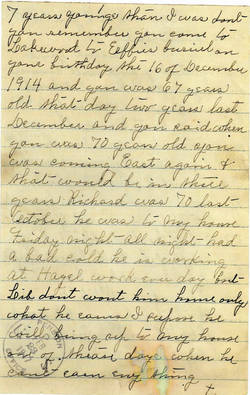 7 years younge than I was dont
you remember you come to
Lakewood to Eeffies buriel on
youe birthday the 16 of December
1914 and you was 67 years
old that day two years last
December and you said when
you was 70 years old you
was coming East again &
that would be in three
years Richard was 70 last
October he was to my house
Friday night all night had
a bad cold he is working
at Hagel work evry day but
Lib dont wont him home only
what he earns I supose he
will bring up to my house
one of theise days when he
cant earn any thing